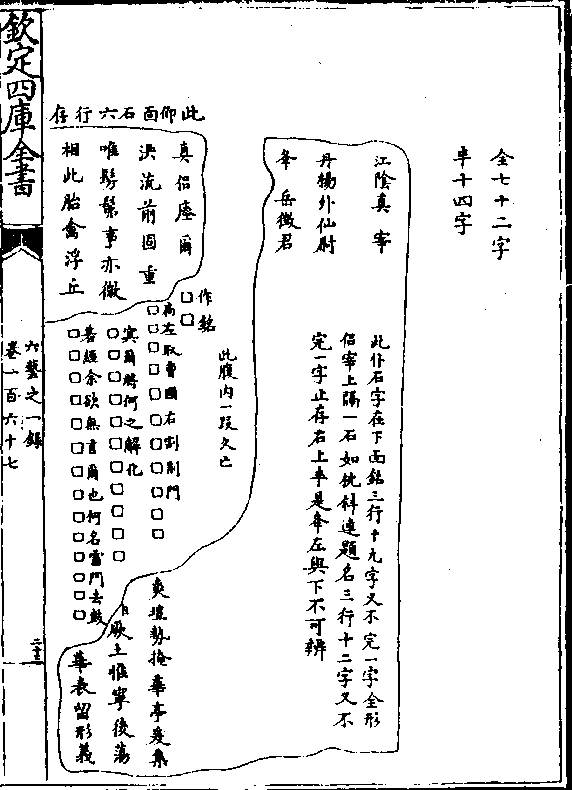 全七十二字
半十四字
江陰真宰
丹楊外仙尉
夆岳徵君
此仆石字在下面銘三行十九字又不完一字全形
侣宰上隔一石如仳斜連題名三行十二字又不
完一字止存右上半是夆左與下不可辨
此仰面石六行存
真侣瘞爾
洪流前固重
唯髣髴事亦微
相此胎禽浮丘
此腹內一段欠亡
作銘
□□
尚左取曹國右割荆門
□□□□□□□□□□□
寅爾將何之解化
□□□□□□□□□□□
著經余欲無言爾也何名雷門去鼓
□□□□□□□□□□□□□□
爽塏勢掩華亭爰集
厥土惟寧後蕩
華表留形義
欽定四庫全書
六藝之一錄
卷一百六十七
二十三